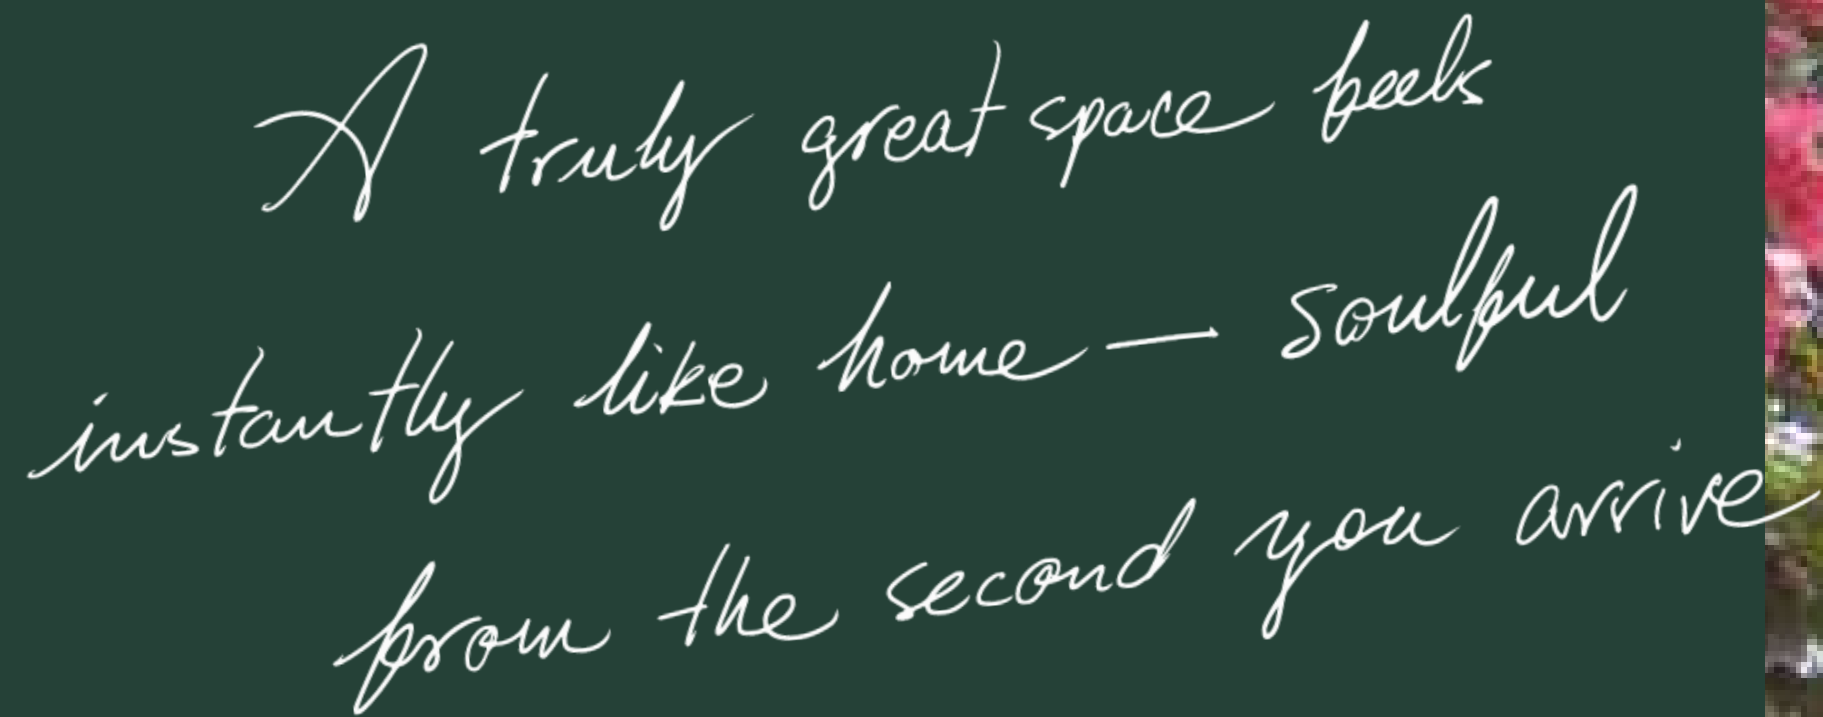 A truly great space feels
instantly like home — soulful
from the second you arrive